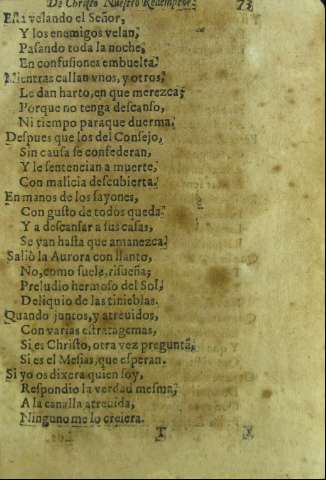 De Christo Nuestro Redemptor. 73
Está velando el Señor,
Y los enemigos velan,
Pasando toda la noche,
En confusiones embuelta.
Mientras callan vnos, y otros,
Le dan harto, en que merezca;
Porque no tenga descanso,
Ni tiempo paraque duerma.
Despues que los del Consejo,
Sin causa se confederan,
Y le sentencian a muerte,
Con malicia descubierta.
En manos de los sayones,
Con gusto de todos queda.
Y a descansar a sus casas,
Se van hasta que amanezca.
Saliò la Aurora con llanto,
No, como suele, risueña;
Preludio hermoso del Sol,
Deliquio de las tinieblas.
Quando juntos, y atreuidos,
Con varias estratagemas,
Si es Christo, otra vez pregunta,
Si es el Mesias, que esperan.
Si yo os dixera quien soy,
Respondio la verdad mesma,
A la canalla atreuida,
Ninguno me lo creiera.
T